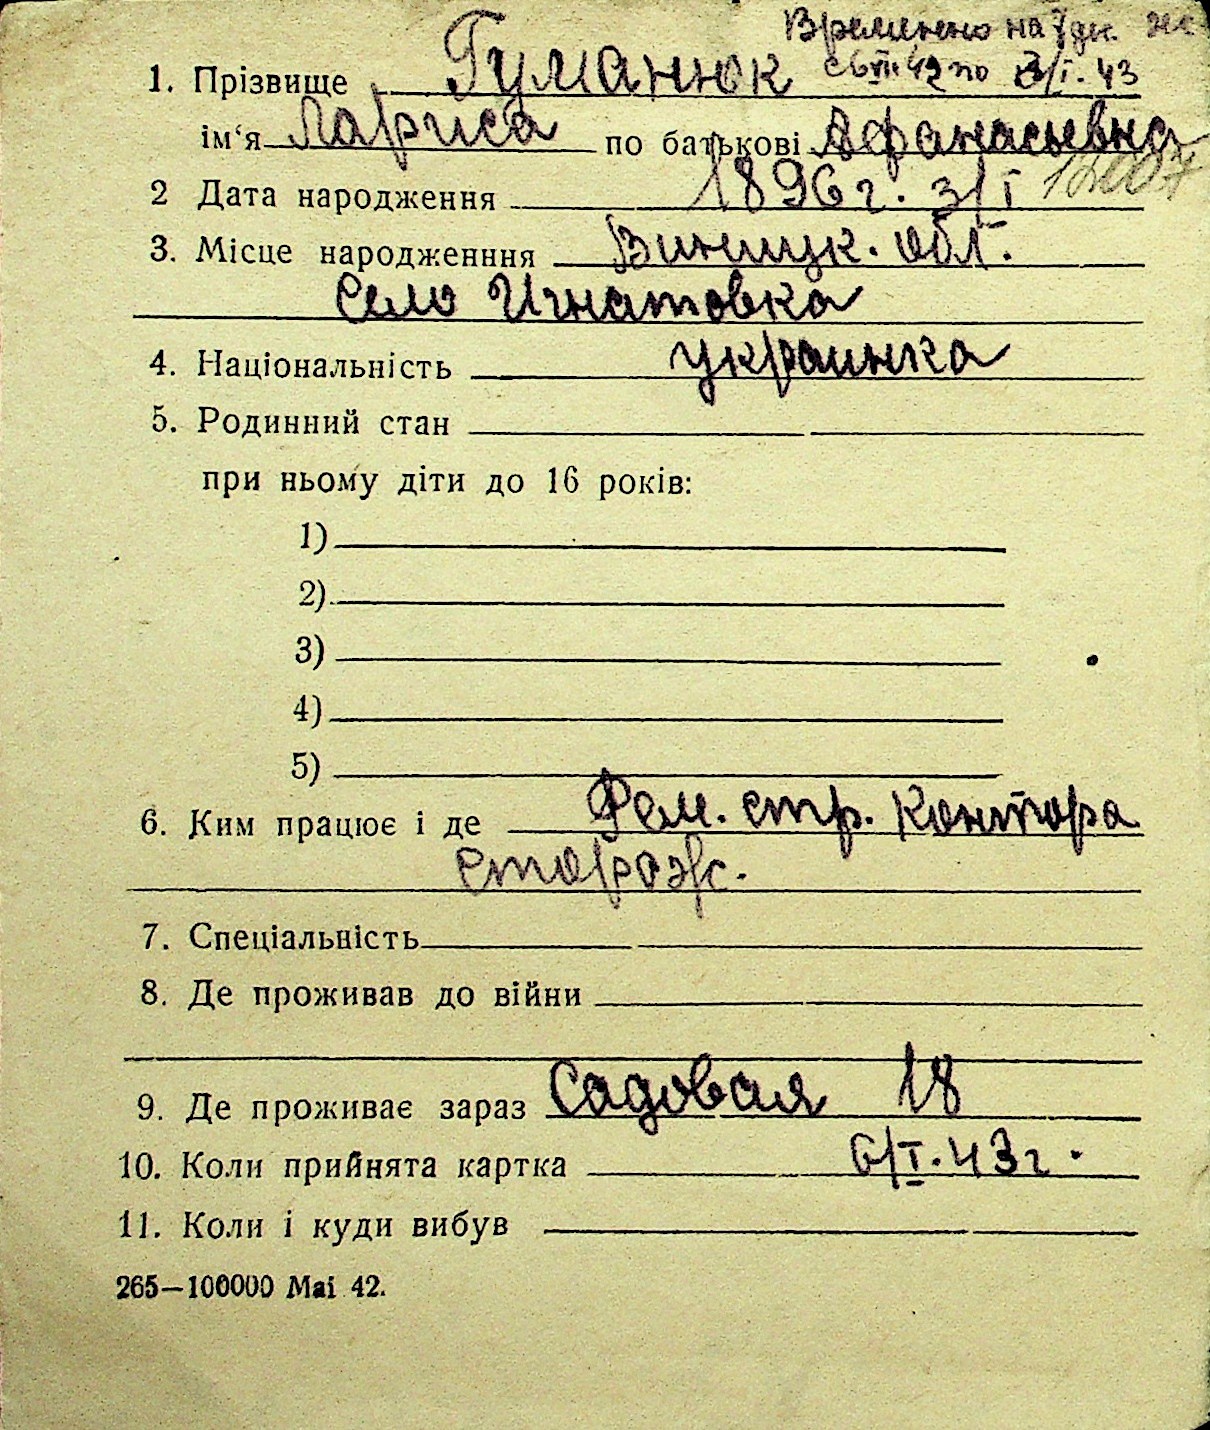 Временно на
1. Прізвище Гуманюк с 6 VII 42 по 3/I. 43
ім‘я Лариса по батькові Афанасьевна
2 Дата народження 1896 г. 3/I
3. Місце народженння Виницк. обл.
Село Игнатовка
4. Національність украинка
5. Родинний стан
при ньому діти до 16 років:
1)
2)
3)
4)
5)
6. Ким працює і де Рем. стр. Контора
сторож.
7. Спеціальність
8. Де проживав до війни
9. Де проживає зараз Садовая 18
10. Коли прийнята картка 6/I. 43 г.
11. Коли і куди вибув
265—100000 Mai 42.